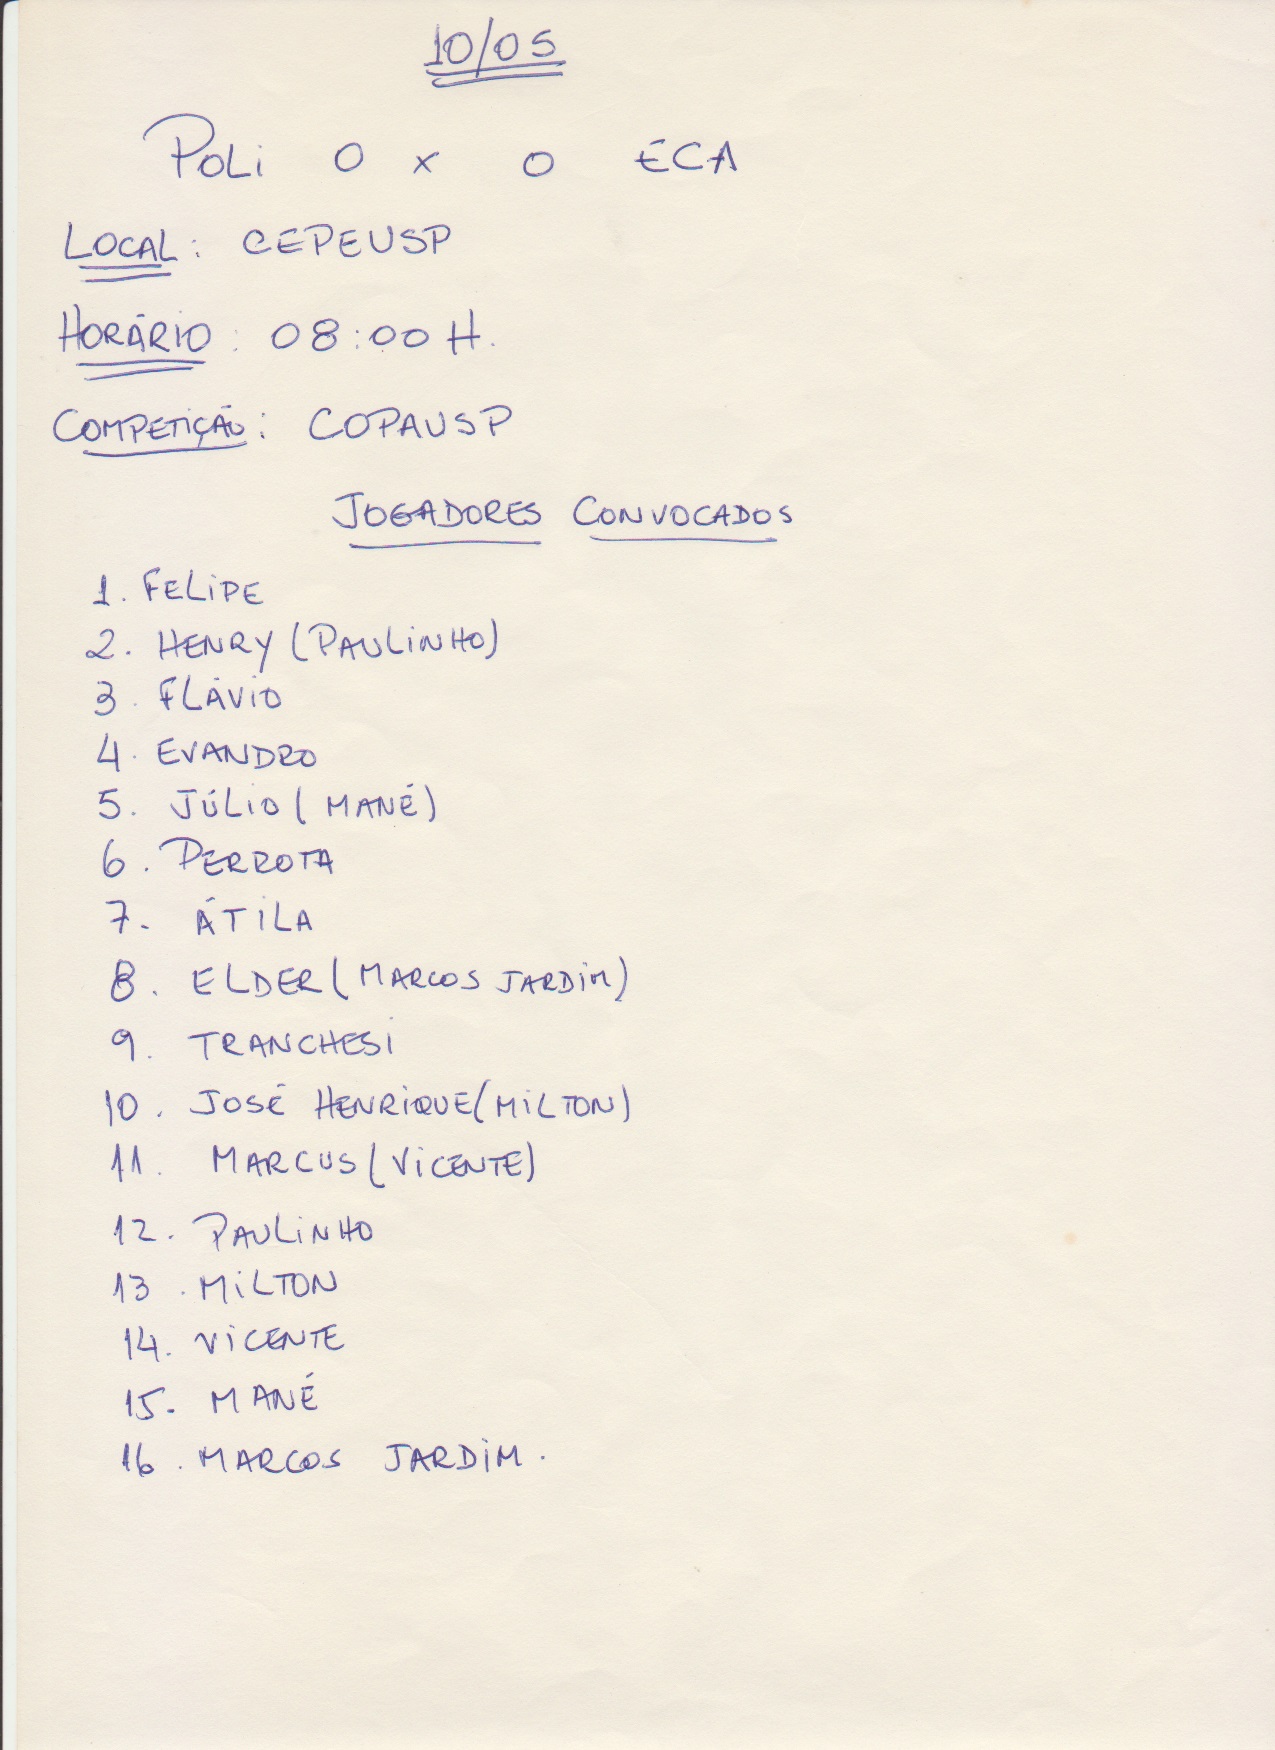 10/05
POLI 0 x 0 ECA
LOCAL: CEPEUSP
HORÁRIO: 08:00 H.
COMPETIÇÃO: COPAUSP
JOGADORES CONVOCADOS
1. FELIPE
2. HENRY (PAULINHO)
3. FLÁVIO
4. EVANDRO
5. JÚLIO (MANÉ)
6. PERROTA
7. ÁTILA
8. ELDER (MARCOS JARDIM)
9. TRANCHESI
10. JOSÉ HENRIQUE (MILTON)
11. MARCUS (VICENTE)
12. PAULINHO
13. MILTON
14. VICENTE
15. MANÉ
16. MARCOS JARDIM.